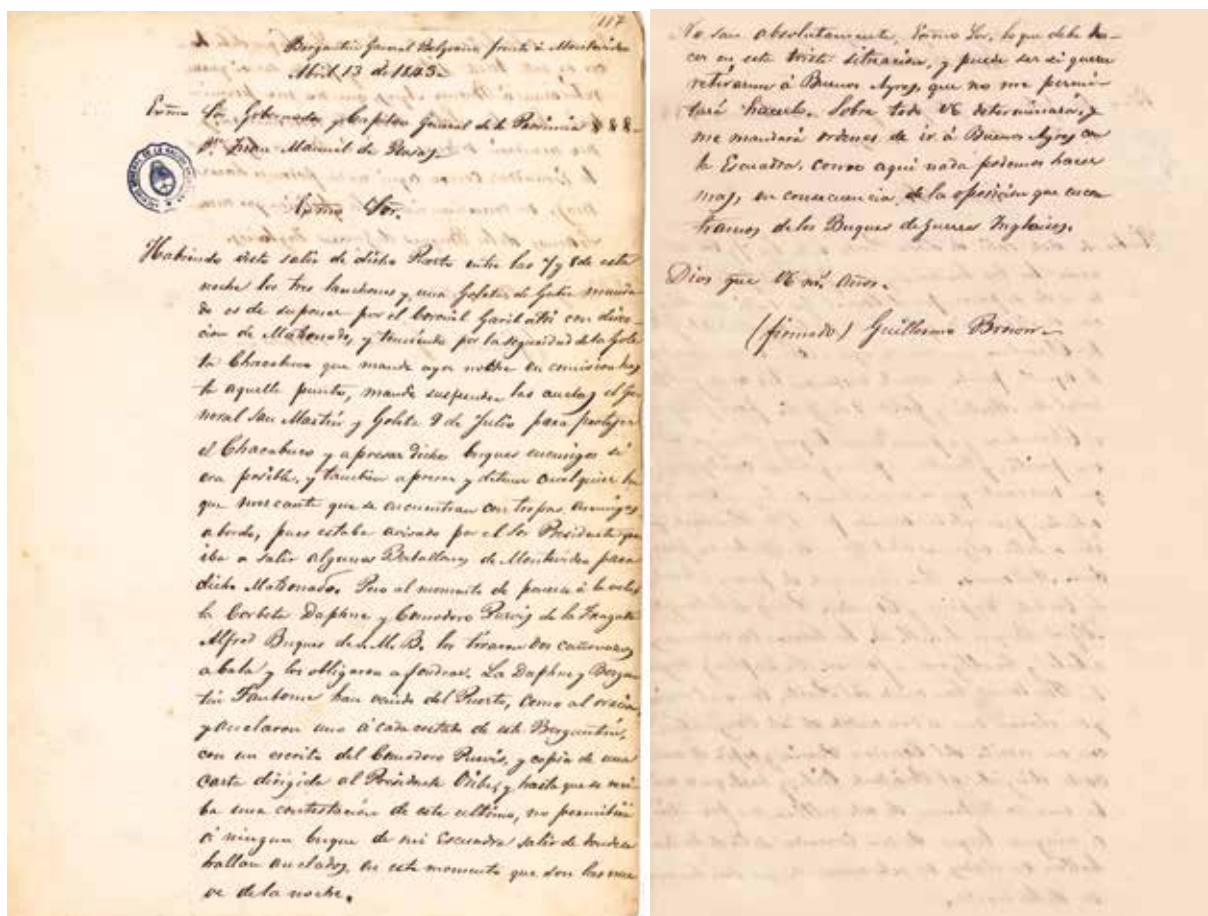 117
Bergantin General Belgrano frente á Montevideo
Abril 13 de 1843.
Exmo Sor Gobernador y Capitan General de la Provincia
Dn. Juan Manuel de Rosas
Exmo Sor.
Habiendo visto salir de dicho Puerto entre las 7 y 8 de esta
noche los tres lanchones y una Goleta de Gabia manda-
do es de suponer por el Coronel Garibaldi con direc-
cion de Maldonado, y temiendo por la seguridad de la Gole-
ta Chacabuco que mandé ayer noche en comision has-
ta aquella punta, mandé suspender las anclas el Ge-
neral San Martin y Goleta 9 de Julio para protejer
el Chacabuco y apresar dichos buques enemigos si
era posible, y tambien apresar y detener cualquier bu-
que mercante que se encuentran con tropas enemigas
abordo, pues estaba avisado por el Sor Presidente que
iba a salir algunos Batallones de Montevideo para
dicho Maldonado. Pero al momento de ponerse á la vela
la Corbeta Daphne y Comodoro Purvis de la Fragata
Alfred Buques de S. M. B. les tiraron dos cañonazos
a bala y los obligaron a fondear. La Daphne y Bergan-
tin Fantome han venido del Puerto, como al oscurecer
y anclaron uno á cada costado de este Bergantin,
con un escrito del Comodoro Purvis, y copia de una
carta dirigida al Presidente Oribe, y hasta que se reci-
ba una contestacion de este ultimo, no permitirá
á ningun buque de mi Escuadra salir de donde se
hallan anclados, en este momento que son las nue-
ve de la noche.
Yo sau absolutamente, Exmo Sor, lo que debe ha-
cer en esta triste situacion, y puede ser si quiero
retirarme á Buenos Ayres, que no me permi-
tará hacerlo. Sobre todo VE determinará, y
me mandará ordenes de ir á Buenos Ayres con
la Escuadra, como aqui nada podemos hacer
mas, en consecuencia de la oposicion que encon-
tramos de los Buques de Guerra Ingleses.
Dios gue VE ms. Años.
(firmado) Guillermo Brown